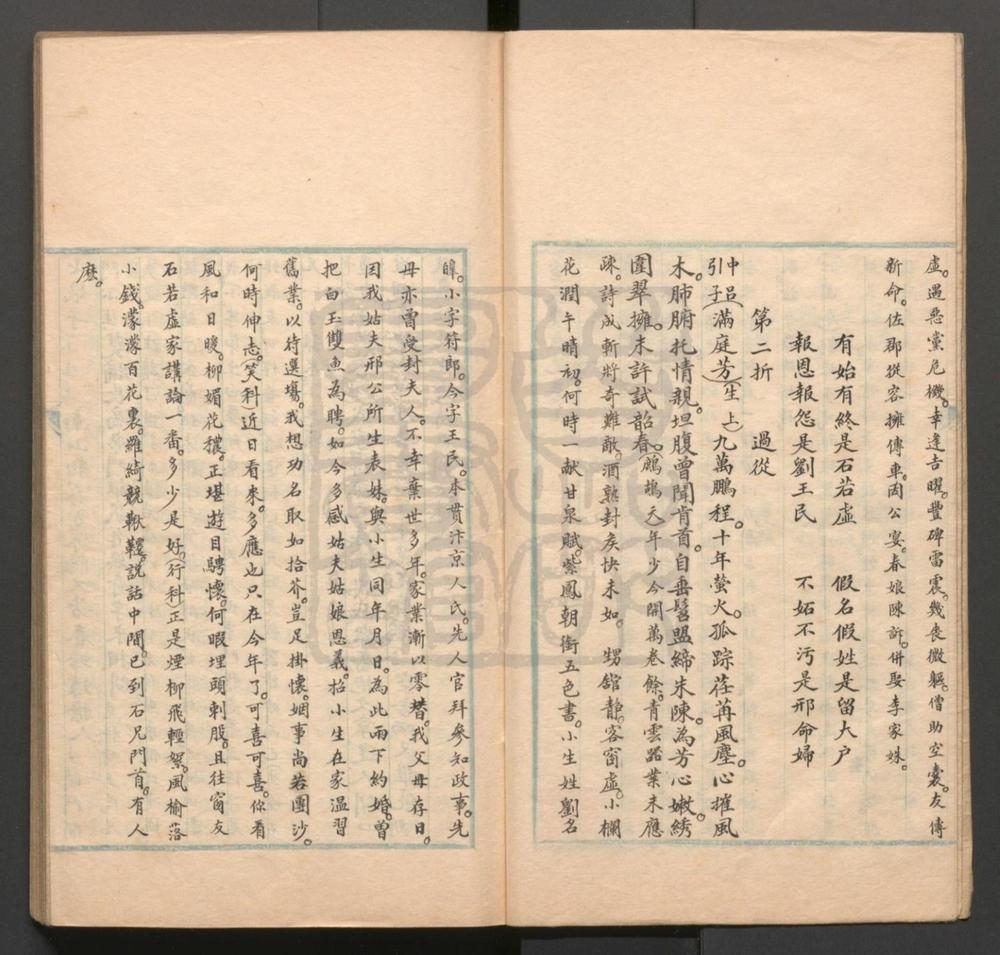 虛。遇惡黨危機。幸逢吉曜。豐碑雷震。幾喪微軀。僧助空囊。友傳
新命。佐郡從容擁傳車。因公宴。春娘陳訴。併娶李家姝。
有始有終是石若虛　假名假姓是留大户
報恩報怨是劉王民　不妬不污是邢命婦
第二折　過從
中呂引子(滿庭芳)(生上)九萬鵬程。十年螢火。孤踪荏苒風塵。心摧風
木。肺腑托情親。坦腹曾聞肯首。自垂髫盟締朱陳。為芳心嫩綉
圍翠擁。未許試韶春。鷓鴣天年少今開萬卷餘。青雲路業未應
疎。詩成斬將奇難敵。酒熟封矦快未如。　甥舘靜。客窗虛。小欄
花潤午晴初。何時一献甘泉賦。紫鳳朝銜五色書。小生姓劉名
皡。小字符郎。今字王民。本貫汴京人氏。先人官拜參知政事。先
母亦曾受封夫人。不幸棄世多年。家業漸以零替。我父母存日。
因我姑夫邢公所生表妹。與小生同年月日。為此兩下約婚。曾
把白玉雙魚為聘。如今多感姑夫姑娘恩義。招小生在家温習
舊業。以待選塲。我想功名取如拾芥。豈足掛懷。姻事尚若團沙。
何時伸志。(笑科)近日看來。多應也只在今年了。可喜可喜。你看
風和日暖。柳媚花穠。正堪遊目騁懷。何暇埋頭刺股。且往窗友
石若虛家講論一番。多少是好。(行科)正是煙柳飛輕絮。風榆落
小錢。濛濛百花裏。羅綺競鞦韆。説話中間。已到石兄門首。有人
麽。